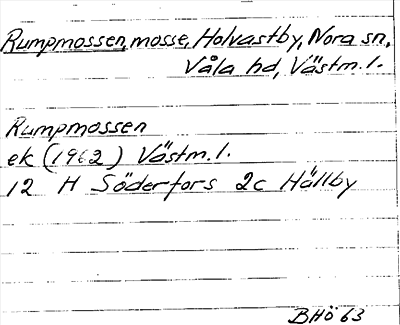 Rumpmossen, mosse, Holvastby, Nora sn,
Våla hd, Västm. l.
Rumpmossen
ek (1962) Västm. l.
12 H Söderfors 2c Hällby
BHö 63